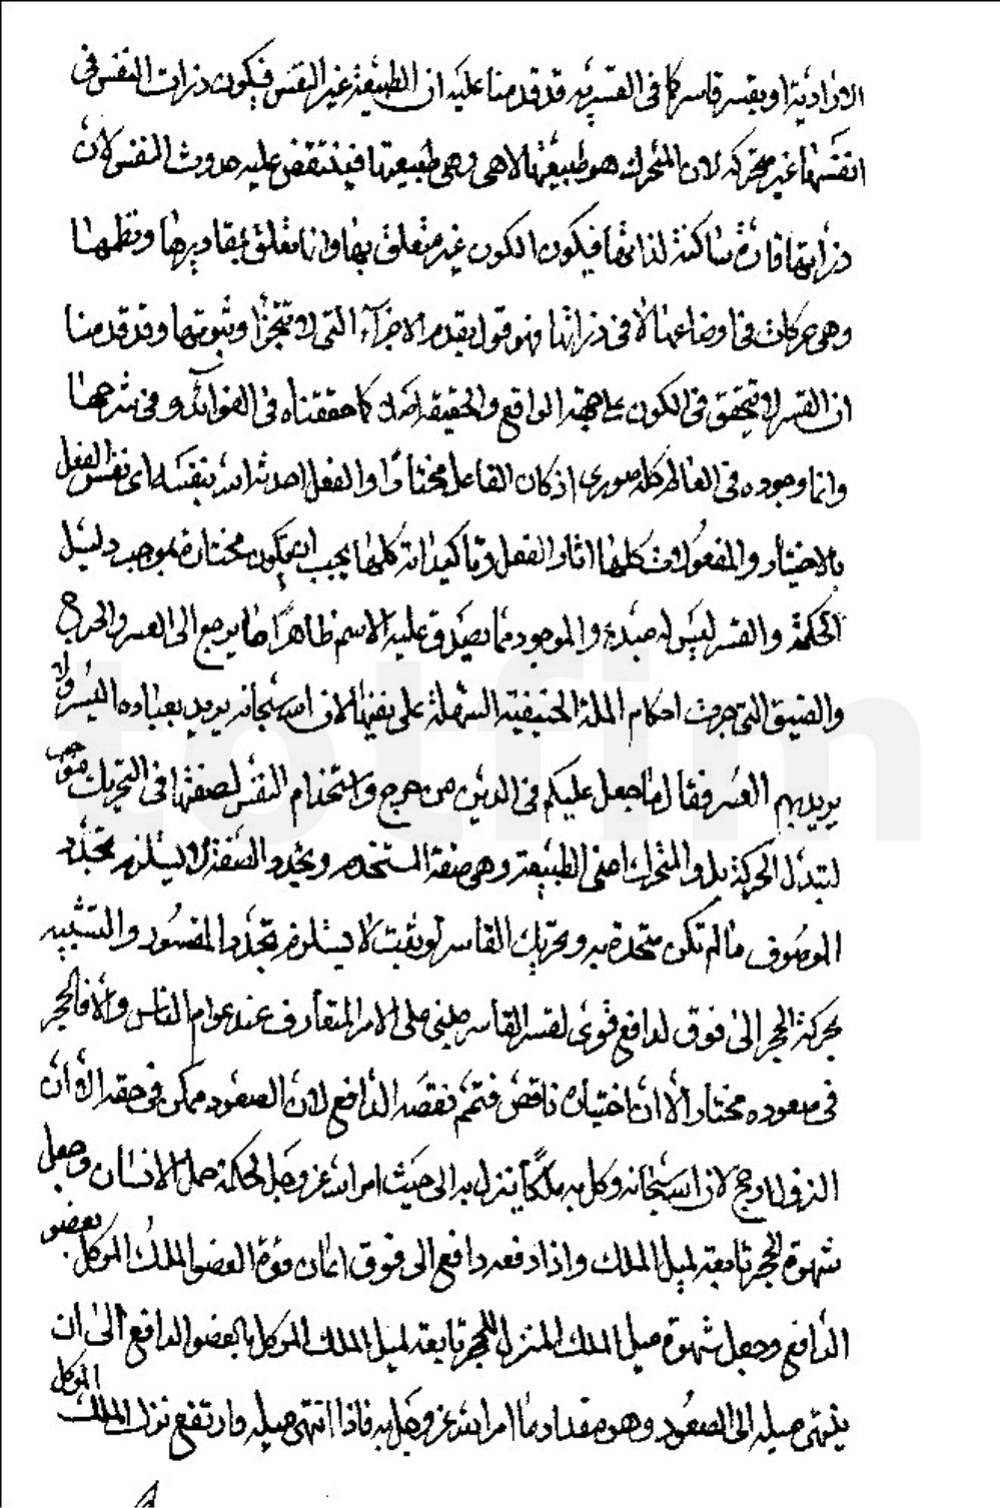 الارادية او بقسر قاسر كما فى القسرية قد قدمنا عليه ان الطبيعة غير النفس فيكون ذوات النفس فى
انفسها غير متحركة لان المتحرك هو طبيعتها لا هى وهى طبيعتها فينتقض عليه حدوث النفس لان
ذواتها قارة ساكنة لذاتها فيكون الكون غير متعلق بها وانما تعلق بمقاديرها ونظمها
وهى حركات فى اوضاعها لا فى ذواتها فهو قول بقدم الاجزآء التى لا تتجزأ وثبوتها وقد قدمنا
ان القسر لا يتحقق فى الكون على جهة الواقع والحقيقة كما حققناه فى الفوائد و فى شرحها
وانما وجوده فى العالم كله صورى اذ كان الفاعل مختارًا والفعل احدثه الله بنفسه اى نفس الفعل
بالاختيار والمفعولات كلها اثار الفعل وتأكيداته كلها يجب ان يكون مختارة بموجب دليل
الحكمة والقسر ليس له مبدء والموجود مما يصدق عليه الاسم ظاهرًا ما يرجع الى العسر والحرج
والضيق التى جرت احكام الملة الحنيفية السهلة على نفيها لان الله سبحانه يريد بعباده اليسر ولا
يريد بهم العسر فقال ما جعل عليكم فى الدين من حرج واستخدام النفس لصفتها فى التحريك موجب
لتبدل الحركة بل والمتحرك اعنى الطبيعة وهى صفة المستخدم وتجدد الصفة لا يستلزم تجدد
الموصوف ما لم تكن متحدة به وتحريك القاسر لو ثبت لا يستلزم تجدد المقسور والتشبيه
بحركة الحجر الى فوق لدافع قوى لقسر القاسر مبنى على الامر المتعارف عند عوام الناس والا فالحجر
فى صعوده مختار الا ان اختياره ناقص فتمم نقصه الدافع لان الصعود ممكن فى حقه الا ان
النزول ارجح لان الله سبحانه وكل به ملكًا ينزل به الى حيث امر الله عز وجل لحكمة حمل الانسان وجعل
شهوة الحجر تابعة لميل الملك واذا دفعه دافع الى فوق اعان قوة العضو الملك الموكل بعضو
الدافع وجعل شهوة ميل الملك المنزل للحجر تابعة لميل الملك الموكل بالعضو الدافع الى ان
ينتهى ميله الى الصعود وهو مقدار ما امر الله عز وجل به فاذا انتهى ميله وارتفع نزل الملك الموكل